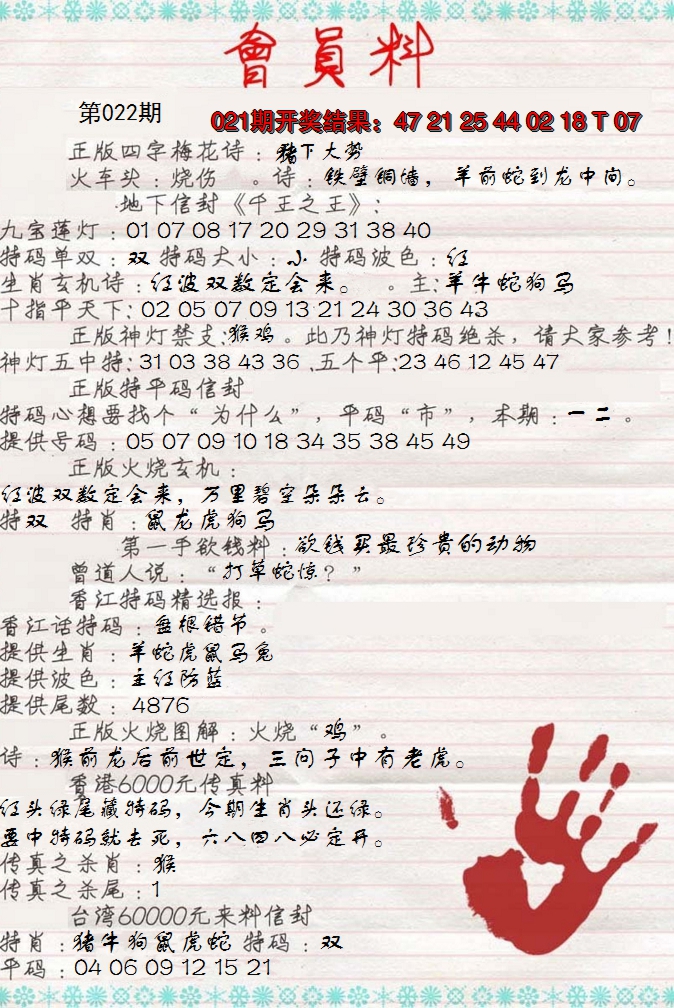 會員料
第022期
021期开奖结果：47 21 25 44 02 18 T 07
正版四字梅花诗：猪下大势
火车头：烧伤 。诗：铁壁铜墙，羊前蛇到龙中间。
.地下信封《千王之王》：
九宝莲灯：01 07 08 17 20 29 31 38 40
特码单双：双 特码大小：小 特码波色：红
生肖玄机诗：红波双数定会来。 。主:羊牛蛇狗马
十指平天下: 02 05 07 09 13 21 24 30 36 43
正版神灯禁支:猴鸡。此乃神灯特码绝杀，请大家参考!
神灯五中特: 31 03 38 43 36 .五个平:23 46 12 45 47
正版特平码信封
特码心想要找个“为什么”，平码“市”，本期：一二。
提供号码：05 07 09 10 18 34 35 38 45 49
正版火烧玄机：
红波双数定会来，万里碧空朵朵云。
特双 特肖：鼠龙虎狗马
第一手欲钱料：欲钱买最珍贵的动物
曾道人说：“打草蛇惊？”
香江特码精选报：
香江话特码：盘根错节。
提供生肖：羊蛇虎鼠马兔
提供波色：主红防蓝
提供尾数：4876
正版火烧图解：火烧“鸡”。
诗：猴前龙后前世定，三问子中有老虎。
香港6000元传真料
红头绿尾藏特码，今期生肖头还绿。
要中特码就去死，六八四八必定开。
传真之杀肖：猴
传真之杀尾：1
台湾60000元来料信封
特肖：猪牛狗鼠虎蛇 特码：双
平码：04 06 09 12 15 21